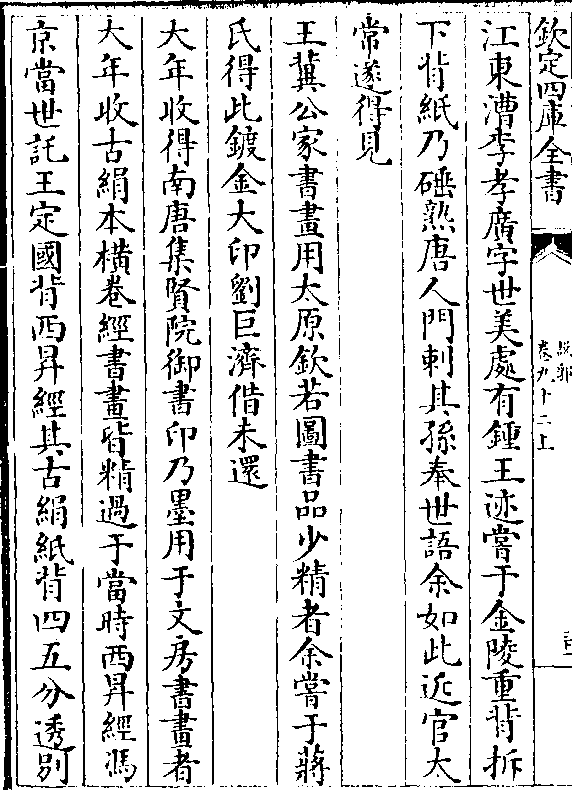 欽定四庫全書
說郛
卷九十二上
江東漕李孝廣字世美處有鍾王迹嘗于金陵重背拆
下背紙乃硾熟唐人門刺其孫奉世語余如此近官太
常遂得見
王冀公家書畫用太原欽若圖書品少精者余嘗于蔣
氏得此鍍金大印劉巨濟借未還
大年收得南唐集賢院御書印乃墨用于文房書畫者
大年收古絹本橫卷經書畫皆精過于當時西昇經馮
京當世託王定國背西昇經其古絹紙背四五分透别